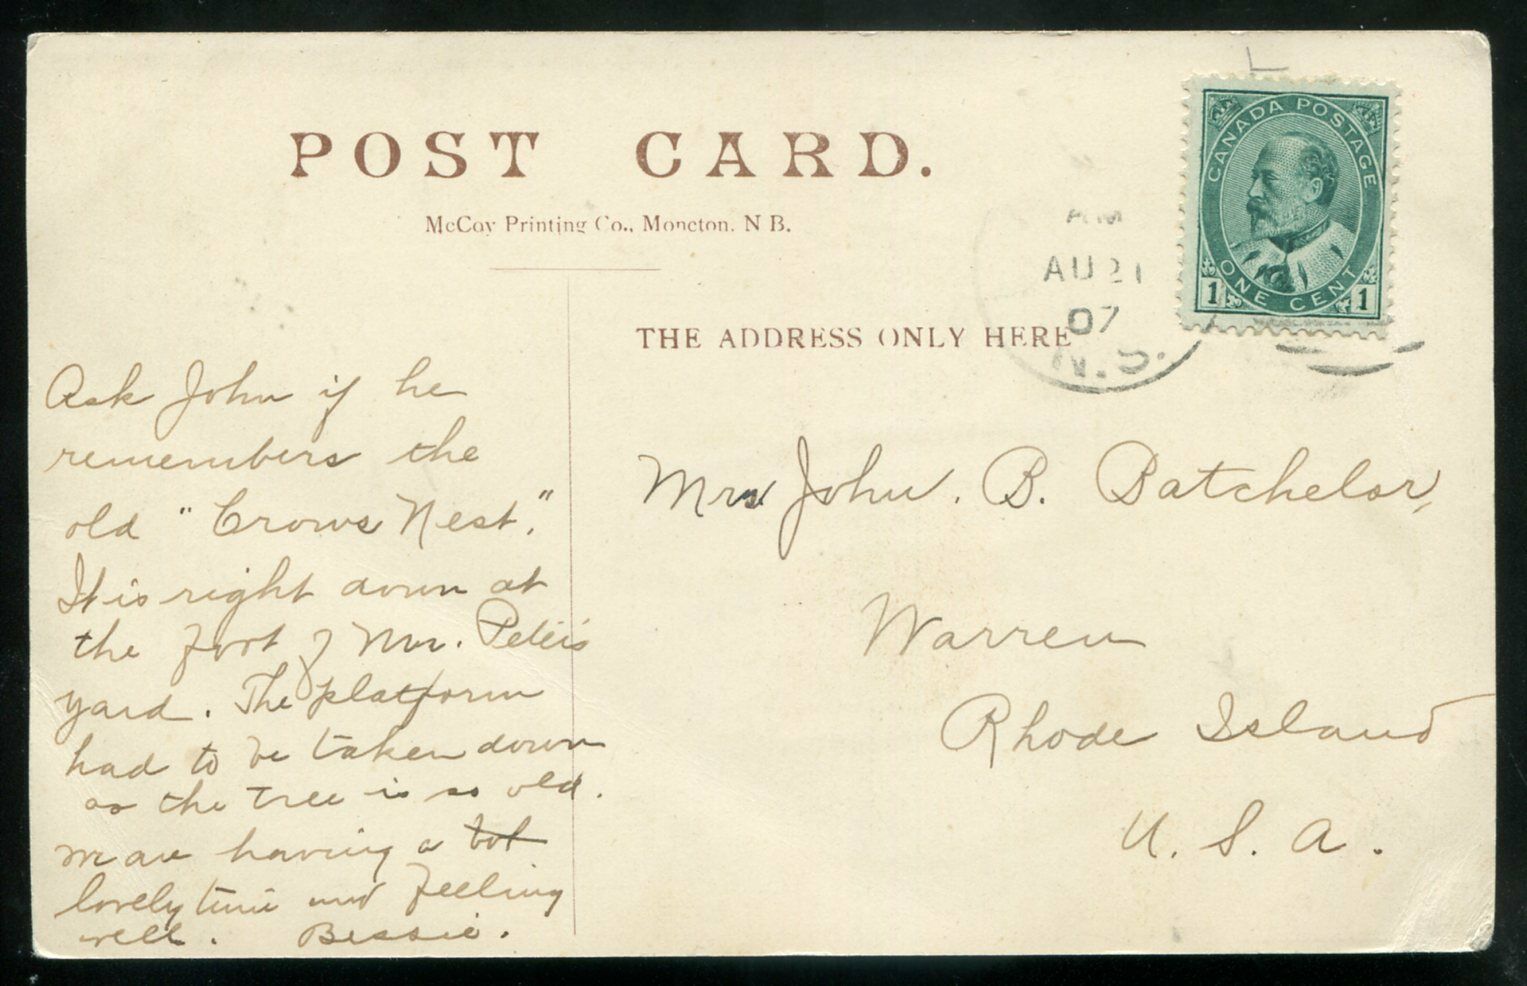 POST CARD.
McCoy Printing Co., Moncton. N B.
CANADA POSTAGE
ONE CENT
1 1
AM
AU 21
07
N.S.
THE ADDRESS ONLY HERE
Ask John if he
remembers the
old "Crows Nest."
It is right down at
the foot of Mr. Peter's
yard. The platform
had to be taken down
as the tree is so old.
we are having a
lovely time and feeling
well. Bessie.
Mrs John. B. Batchelor,
Warren
Rhode Island
U. S. A.